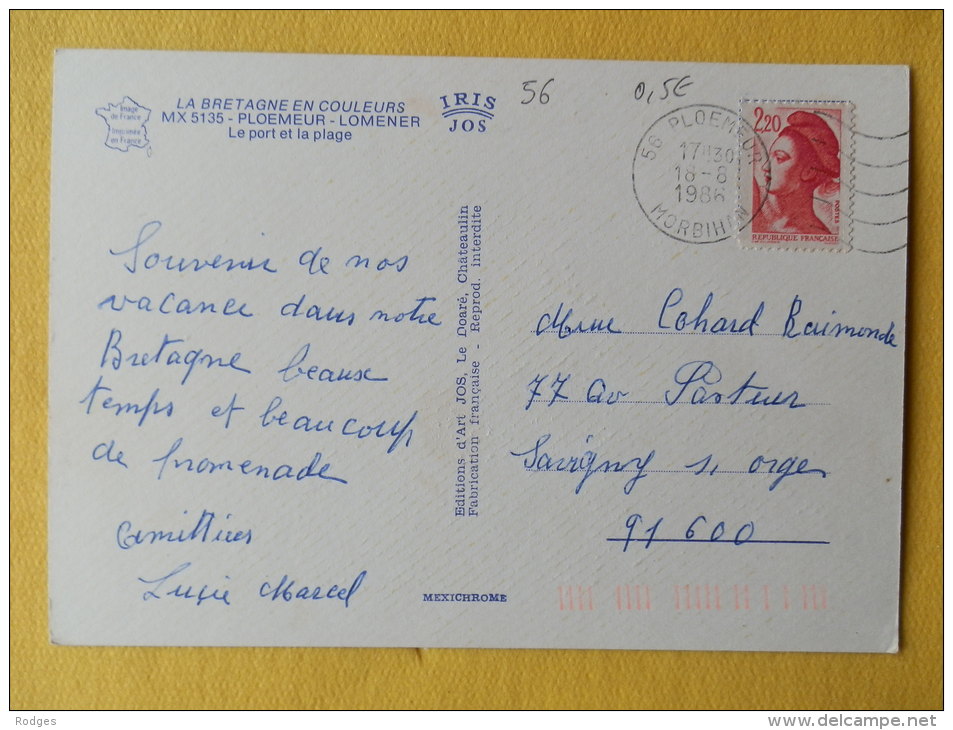 Image
de France
Imprimée
en France
LA BRETAGNE EN COULEURS
MX 5135 - PLOEMEUR - LOMENER
Le port et la plage
IRIS
JOS
56
0,5€
56 PLOEMEUR
17H30
18-8
1986
MORBIHAN
2,20
POSTES
REPUBLIQUE FRANÇAISE
Souvenir de nos
vacance dans notre
Bretagne beaux
temps et beaucoup
de promenade
amittiées
Lucie Marcel
Editions d'Art JOS, Le Doaré, Châteaulin
Fabrication française - Reprod. interdite
MEXICHROME
Mme Cohard Raimonde
77 av Pasteur
Savigny s, orge
91600
Rodges
www.delcampe.net